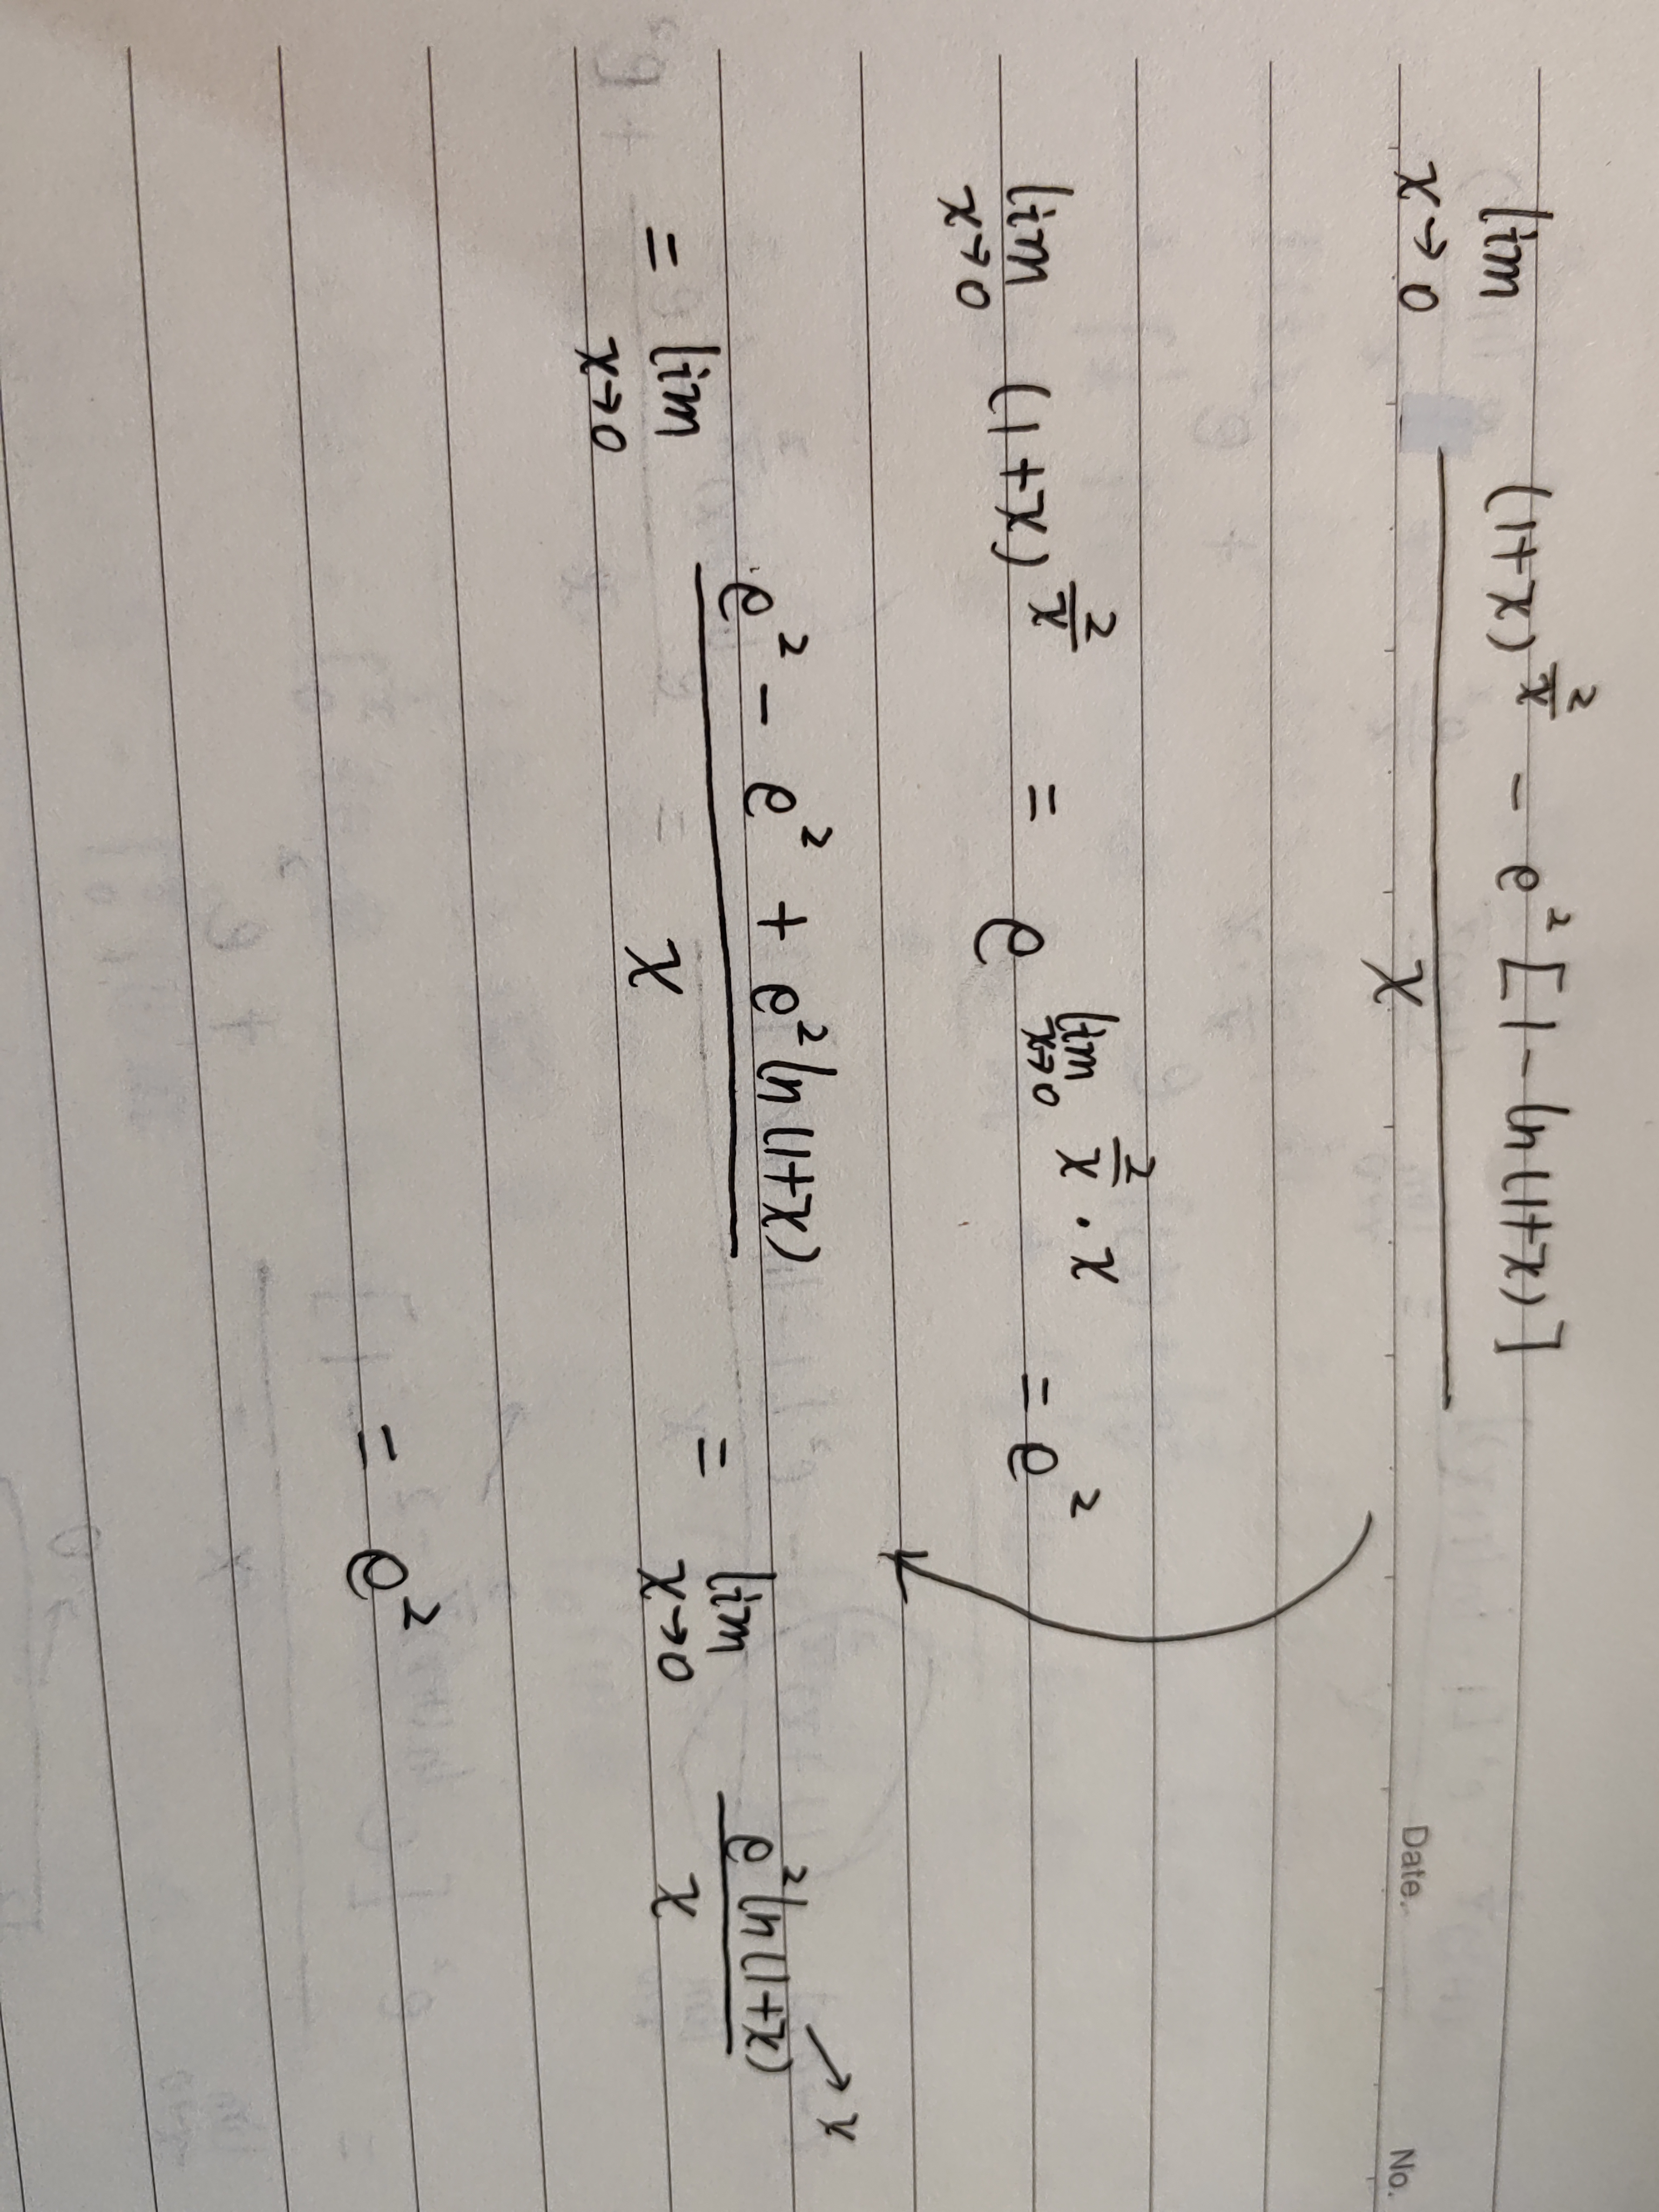 Date. No.
lim x→0 ((1+x)^(2/x) − e^2[1−ln(1+x)])/x
lim x→0 (1+x)^(2/x) = e^(lim x→0 2/x · x) = e^2
= lim x→0 (e^2 − e^2 + e^2 ln(1+x))/x = lim x→0 (e^2 ln(1+x))/x → x
= e^2